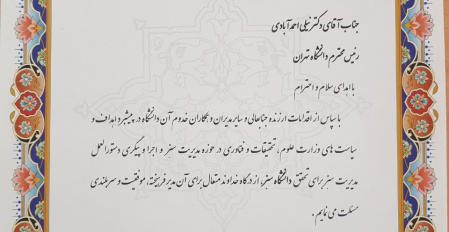 جناب آقای دکتر نیلی احمدآبادی
رئیس محترم دانشگاه تهران
با اهدای سلام و احترام
با سپاس از اقدامات ارزنده جنابعالی و سایر مدیران و همکاران خدوم آن دانشگاه در پیشبرد اهداف و
سیاست های وزارت علوم، تحقیقات و فناوری در حوزه مدیریت سبز و اجرا و پیگیری دستورالعمل
مدیریت سبز برای تحقق دانشگاه سبز، از درگاه خداوند متعال برای آن مدیر فرهیخته، موفقیت و سربلندی
مسئلت می نمایم.